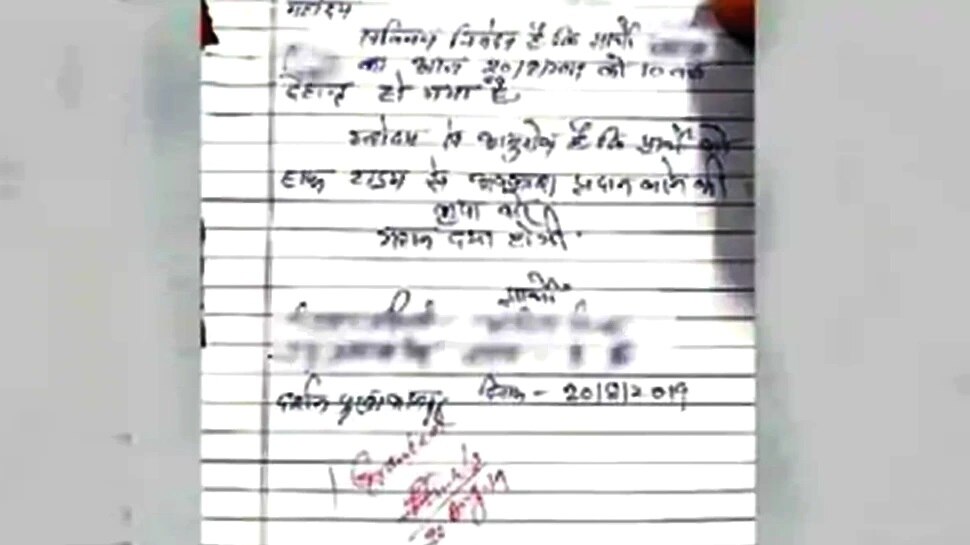 महोदय
सविनय निवेदन है कि प्रार्थी
का आज 20/8/2019 को 10 बजे
देहान्त हो गया है।
महोदय से अनुरोध है कि प्रार्थी को
हाफ टाइम से अवकाश प्रदान करने की
कृपा करें।
महान दया होगी।
प्रार्थी
दिनांक - 20/8/2019
Granted